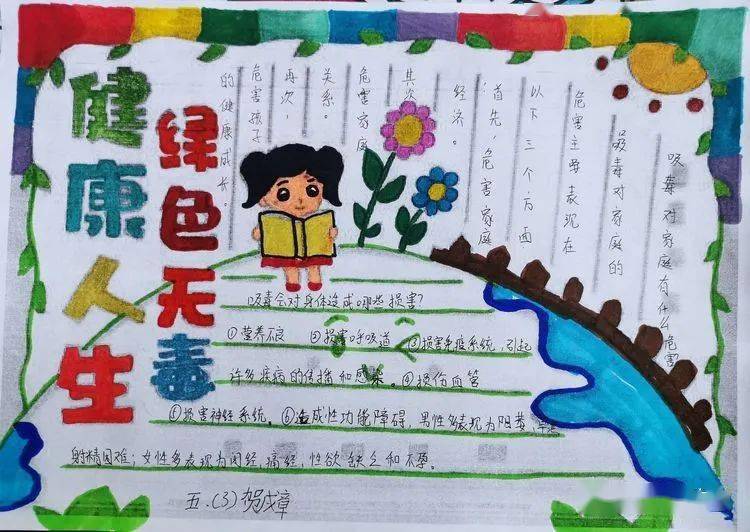 健康人生
绿色无毒
吸毒对家庭有什么危害
吸毒对家庭的
危害主要表现在
以下三个方面
:首先,危害家庭
经济。
其次,
危害家庭
关系。
再次,
危害孩子
的健康成长。
吸毒会对身体造成哪些损害?
①营养不良 ②损害呼吸道 ③损害免疫系统,引起
许多疾病的传播和感染。④损伤血管
⑤损害神经系统。⑥造成性功能障碍,男性多表现为阳萎、
射精困难;女性多表现为闭经,痛经,性欲缺乏和不孕。
五.(3)贺成章